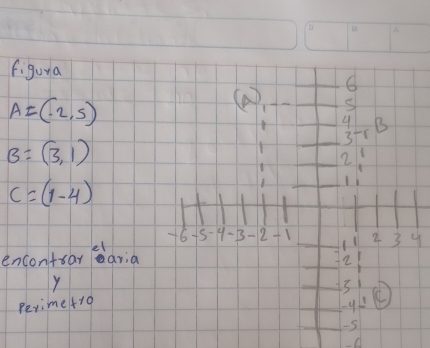 figura
A=(-2,5)
B=(3,1)
C=(1-4)
encontrar el aria
y
perimetro
A
B
C
6
5
4
3
2
1
-6 -5 -4 -3 -2 -1
1 2 3 4
-2
3
-4
-5
-6